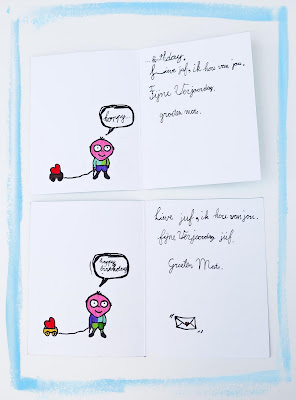 happy...
...Birthday.
Lieve juf, ik hou van jou.
Fijne Verjaardag.
groeten mat.
happy
birthday
Lieve juf, ik hou van jou.
fijne Verjaardag juf.
Groeten Mat.